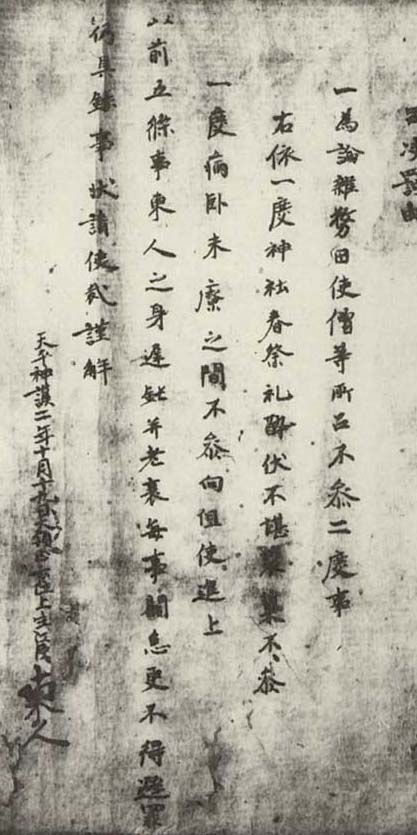 一為論雜務田使僧等所召不參二度事
右依一度神社春祭礼酔伏不堪 不參
一度病卧未療之間不參向但使進上
以前五條事東人之身遲鈍并老衰每事闕怠更不得避罪
仍具錄事狀請使裁謹解
天平神護二年十月十九日
東人